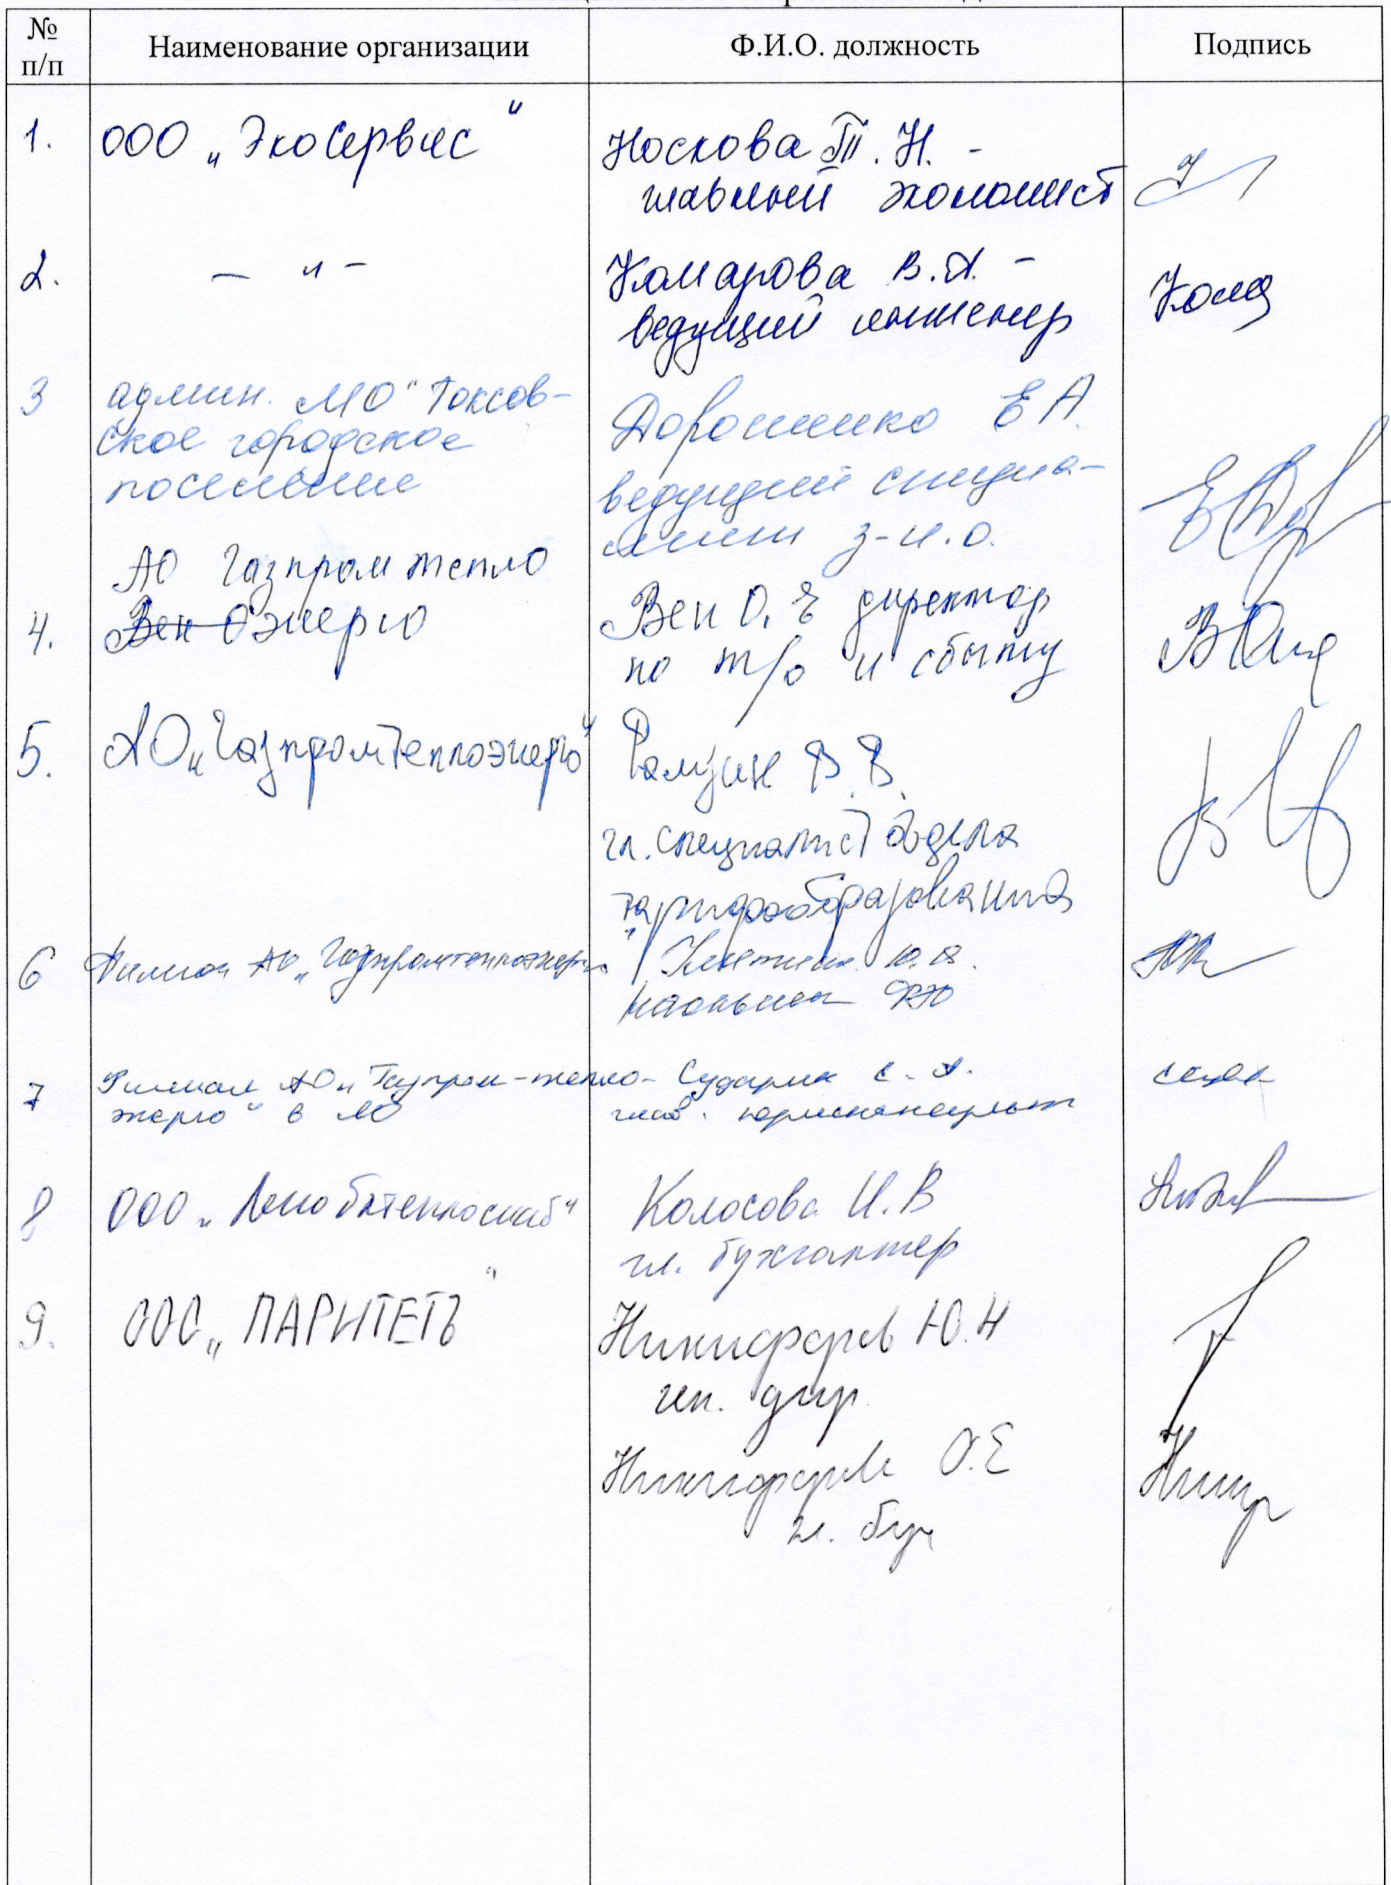 № п/п
Наименование организации
Ф.И.О. должность
Подпись
1.
ООО „ЭкоСервис"
Носкова Т. Н. -
главный экономист
2.
— „ —
Комарова В.А. -
ведущий инженер
3
админ. МО "Токсов-
ское городское
поселение
Дорошенко Е А.
ведущий специа-
лист з-и.о.
4.
АО Газпром тепло
Вен Оэнерго
Вен О. директор
по т/о и сбыту
5.
АО „Газпромтеплоэнерго"
В.В.
гл. специалист отдела
тарифообразования
6
Филиал АО „Газпромтеплоэнерго"
Ю.В.
начальник
7
Филиал АО „Газпром-тепло-
энерго" в ЛО
Сударик С. А.
глав. юрисконсульт
8
ООО „Леноблтеплоснаб"
Колосова И.В
гл. бухгалтер
9.
ООО „ПАРИТЕТЪ"
Никифоров Ю.Н
ген. дир.
О.Е
гл. бух